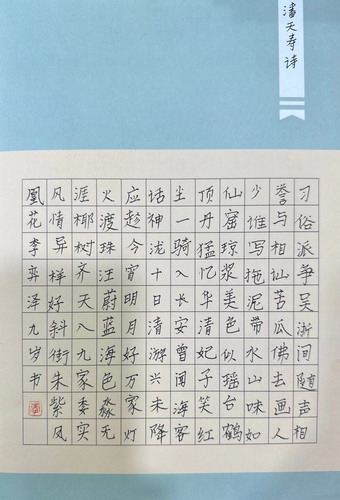 潘天寿诗
习俗派争吴浙间随声相
誉与相讪苦瓜佛去画人
少谁写拖泥带水山味如
仙窟琼浆美色似瑶台鹤
顶丹猛忆华清妃子笑红
尘一骑入长安曾闻海客
话神泷十日清游兴未降
应趁今宵明月好万家灯
火渡珠汪蔚蓝海色淼无
涯椰树齐天八九家委实
风情异样好斜街朱紫凤
凰花李弈泽九岁书